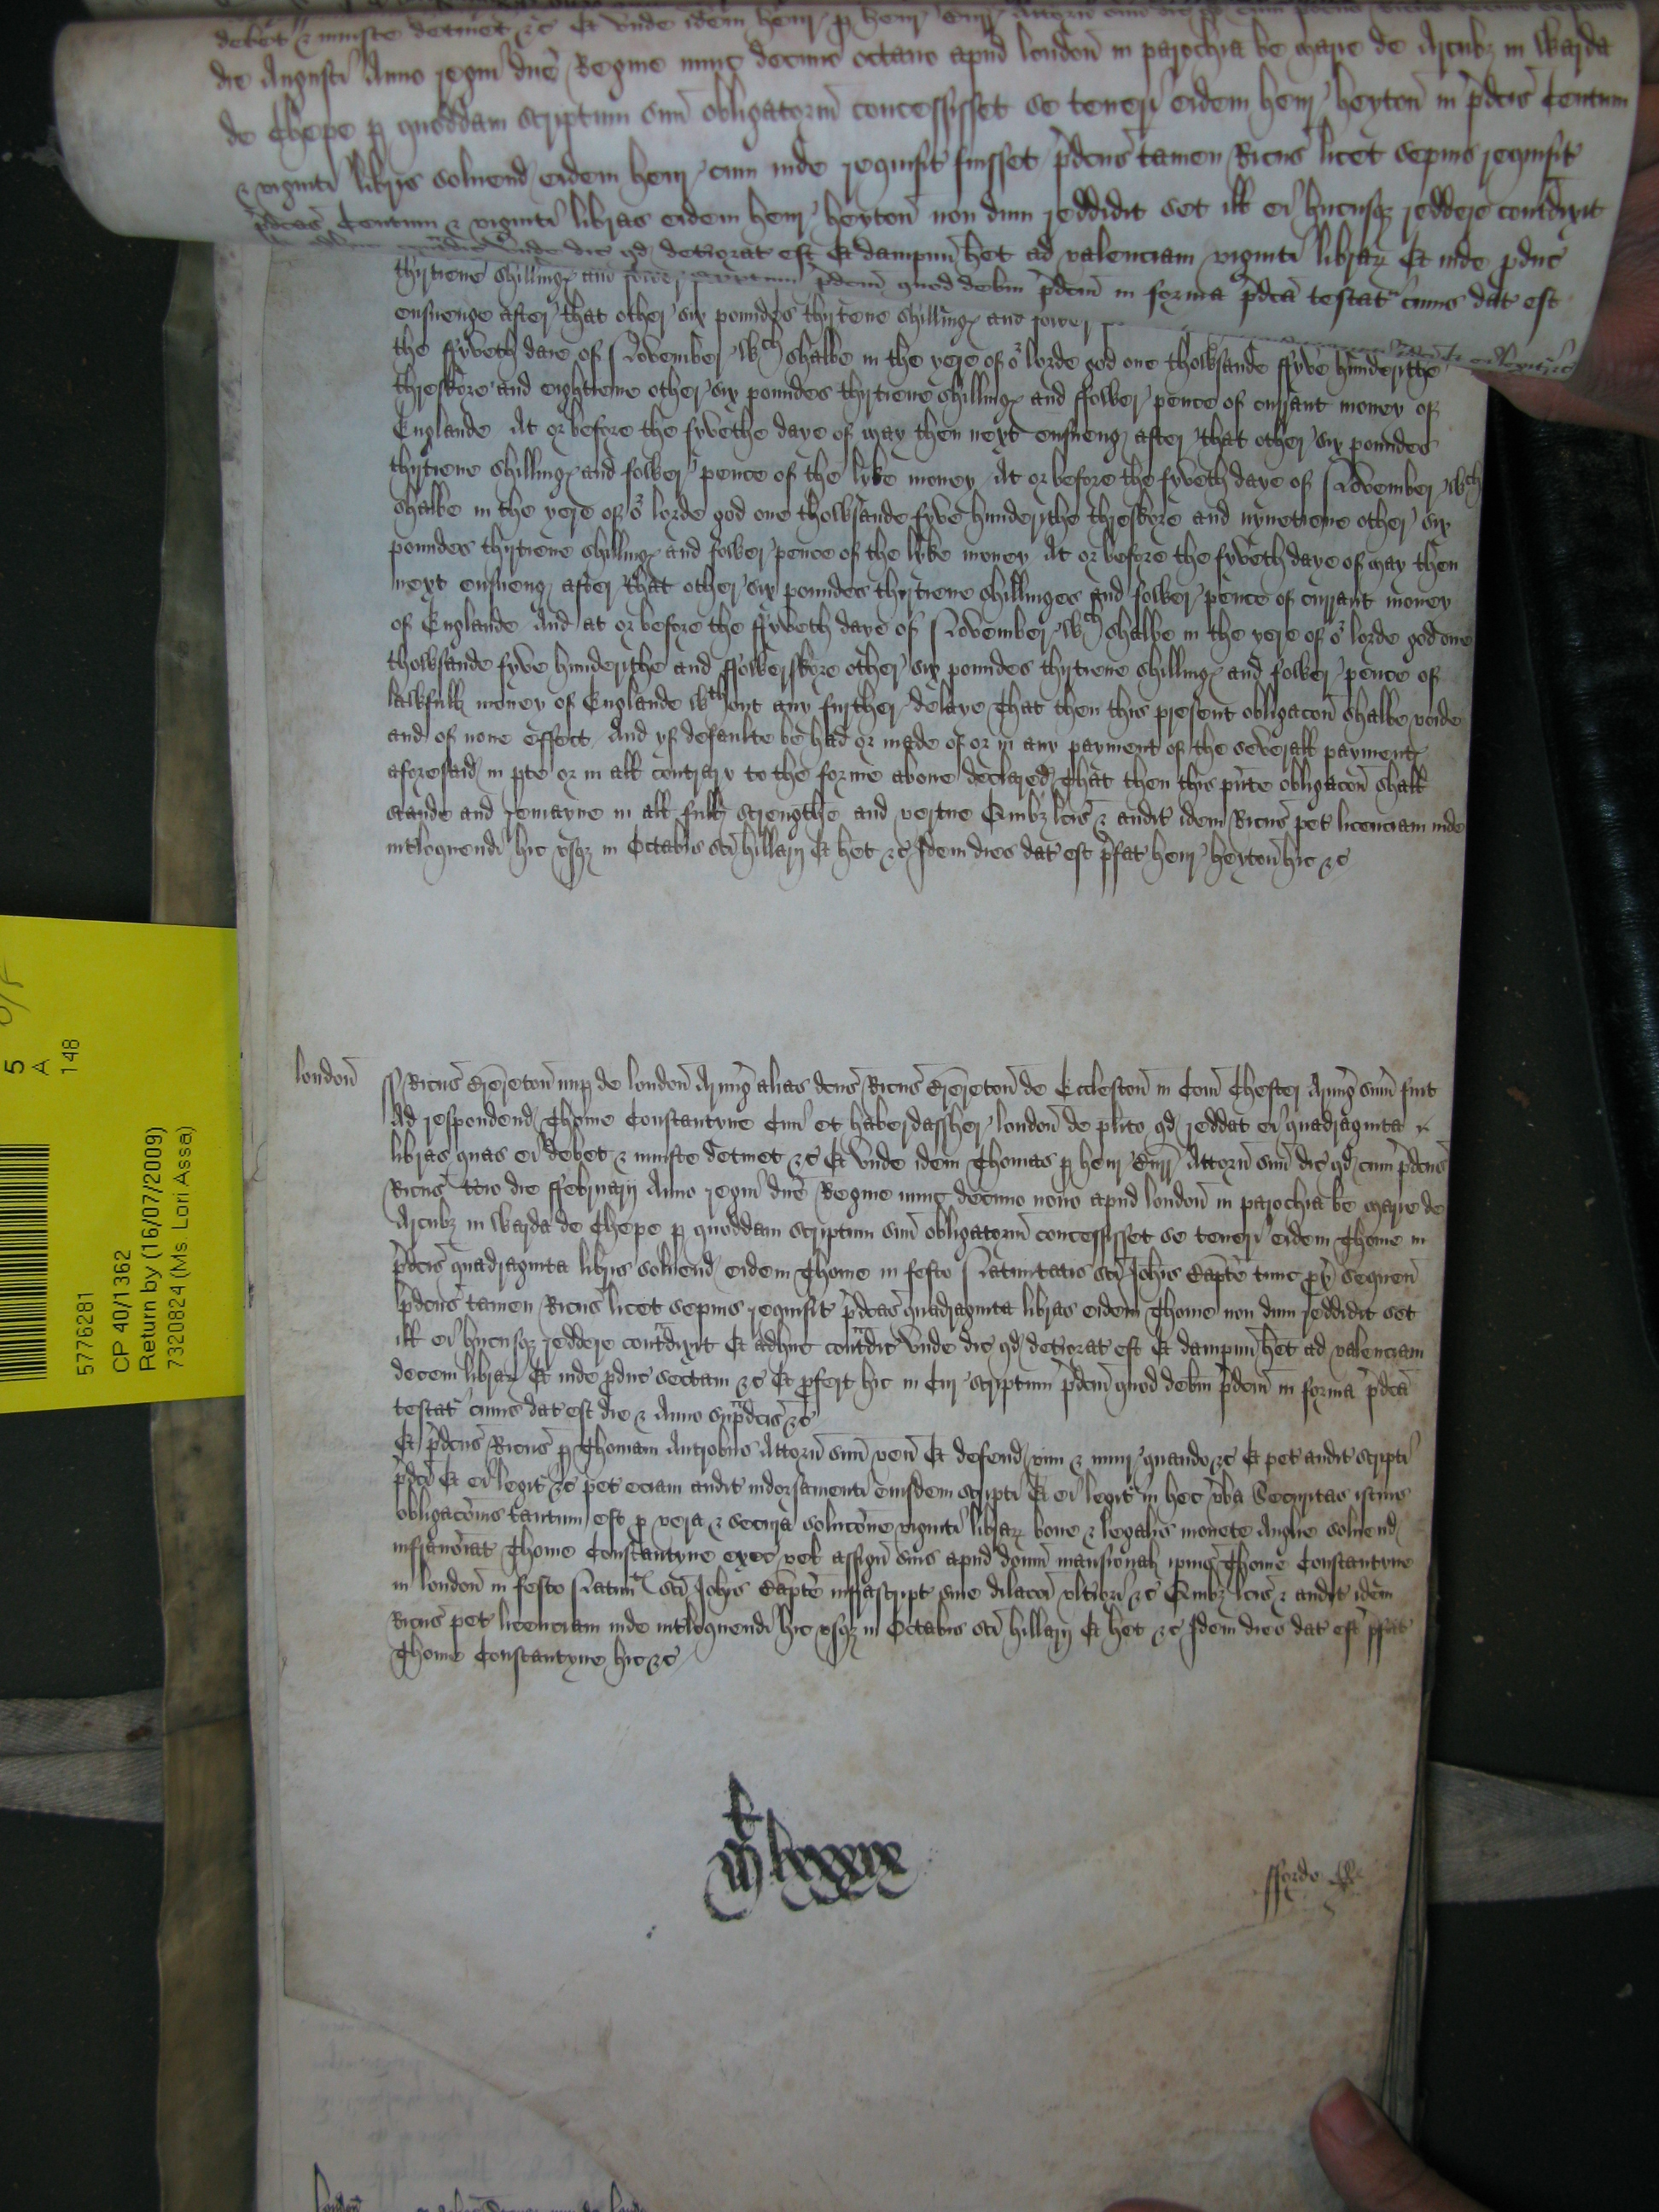 debet & iniuste detinet &c Et unde idem Henr p Henr
die Augusti Anno regni dne Regine nunc decimo octavo apud london in parochia be marie de Arcubz in Warda
de Chepe p quoddam scriptum suu obligatoriu concessisset se teneri eidem Henr Heyton in pdcis Centum
& viginti libris solvend eidem Henr cum inde requisit fuisset pdcus tamen Ricus licet sepius requisit
pdcas Centum & viginti libras eidem Henr Heyton non dum reddidit set ill ei hucusqz reddere contdixit
unde dic qd detiorat est Et dampnu het ad valenciam viginti librar Et inde pduc
pdcm quod debm pdcm in forma pdca testat cuius dat est
thirtene shilling and fower
ensuenge after that other six poundes thirtene shilling and fower
the ffyveth daie of November wch shalbe in the yere of or lorde god one thowsande ffyve hunderithe
threskore and eightiene other six poundes thirtiene shilling and ffower pence of currant money of
Englande At or before the fyvethe daye of may then next ensueng after that other six poundes
thirtiene shilling and fower pence of the lyke money At or before the fyveth daye of November wch
shalbe in the yere of or lorde god one thowsande fyve hunderithe threskore and nynetiene other six
poundes thirtiene shilling and fower pence of the lyke money At or before the fyveth daye of may then
next ensueng after that other six poundes thirtiene shillinges and fower pence of currant money
of Englande And at or before the ffyveth daye of November wch shalbe in the yere of or lorde god one
thowsande fyve hunderithe and ffowerskore other six poundes thirtiene shilling and fower pence of
lawfull money of Englande wthout any further delaye That then this present obligacon shalbe voide
and of none effect And yf defaulte be had or made of or in any payment of the severall payment
aforesaid in pte or in all contrary to the forme above declared That then this pnte obligacon shall
stande and remayne in all full strengthe and vertue Quibz lcis & audit idem Ricus pet licenciam inde
intloquendi hic usqz in Octabis sci hillarij Et het &c Idem dies dat est pfat Henr Heyton hic &c
london ss Ricus Brereton nup de london Armig alias dcus Ricus Brereton de Eccleston in Com Chester Armig sum fuit
Ad respondend Thome Constantyne Civi et haberdassher london de plito qd reddat ei quadraginta
libras quas ei debet & iniuste detinet &c Et unde idem Thomas p Henr Attorn suu dic qd cum pdcus
Ricus tcio die ffebruarij Anno regni dne Regine nunc decimo nono apud london in parochia be marie de
Arcubz in Warda de Chepe p quoddam scriptum suu obligatoriu concessisset se teneri eidem Thome in
pdcis quadraginta libris solvend eidem Thome in festo Nativitatis sci Johis Bapte tunc px sequen
pdcus tamen Ricus licet sepius requisit pdcas quadraginta libras eidem Thome non dum reddidit set
ill ei hucusqz reddere contdixit Et adhuc contdic unde dic qd detiorat est Et dampnu het ad valenciam
decem librar Et inde pduc sectam &c Et pfert hic in Cur scriptum pdcm quod debm pdcm in forma pdca
testat cuius dat est die & Anno supdcis &c
Et pdcus Ricus p Thomam Antrobus Attorn suu ven Et defend vim & iniur quando &c Et pet audit scripti
pdci Et ei legit &c pet eciam audit indorsamenti eiusdem scripti Et ei legit in hec vba Securitas istius
obligaconis tantum est p vera & secura solucone viginti librar bone & legalis monete Anglie solvend
infranoiat Thome Constantyne exec vel assign suis apud domu mansional ipius Thome Constantyne
in london in festo Nativit sci Johis Bapte infrascript sine dilacoi ultiori &c Quibz lcis & audit idem
Ricus pet licenciam inde intloquendi hic usqz in Octabis sci hillarij Et het &c Idem dies dat est pfat
Thome Constantyne hic &c
fforde
london
5
A
148
5776281
CP 40/1/1362
Return by (16/07/2009)
7320824 (Ms. Lori Assa)